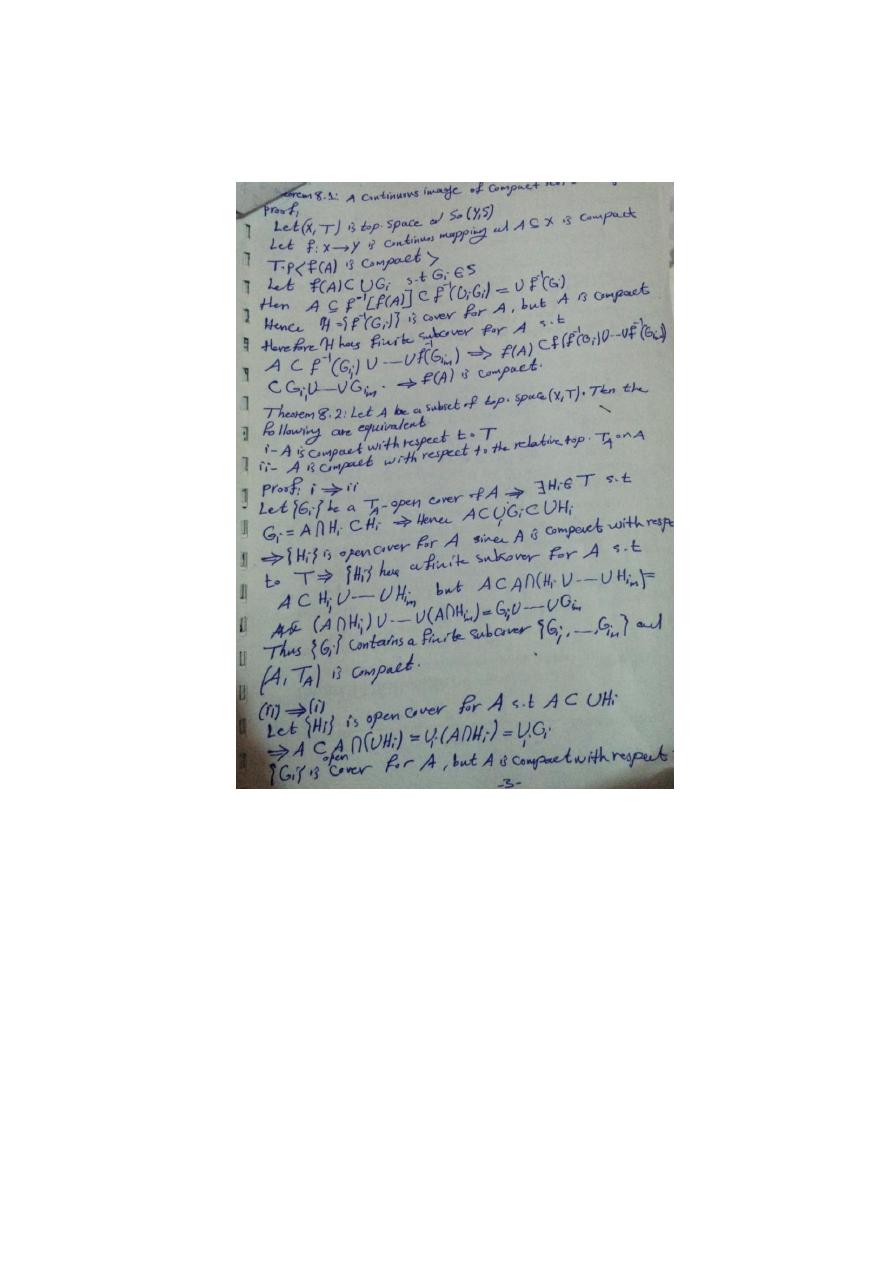 8.1: A Continuous image of Compact
Proof,
Let (X, T) is top. space a) So (Y, S)
Let f: X→Y is continuos mapping and A ⊆ X is compact
T.P < f(A) is compact >
Let f(A) ⊂ ∪Gᵢ s.t Gᵢ ∈ S
then A ⊆ f⁻¹[f(A)] ⊂ f⁻¹(∪ᵢGᵢ) = ∪f⁻¹(Gᵢ)
Hence H = {f⁻¹(Gᵢ)} is cover for A, but A is compact
therefore H has finite subcover for A s.t
A ⊂ f⁻¹(Gᵢ₁) ∪ --- ∪ f⁻¹(Gᵢₘ) ⇒ f(A) ⊂ f(f⁻¹(Gᵢ₁) ∪ -- ∪ f⁻¹(Gᵢₘ))
⊂ Gᵢ₁ ∪ --- ∪ Gᵢₘ. ⇒ f(A) is compact.
Theorem 8.2: Let A be a subset of top. space (X, T). Then the
following are equivalent
i- A is compact with respect to T
ii- A is compact with respect to the relative top. T_A on A
Proof: i ⇒ ii
Let {Gᵢ} be a T_A-open cover of A ⇒ ∃Hᵢ ∈ T s.t
Gᵢ = A∩Hᵢ ⊂ Hᵢ ⇒ Hence A ⊂ ∪ᵢGᵢ ⊂ ∪Hᵢ
⇒ {Hᵢ} is open cover for A since A is compact with respe
to T ⇒ {Hᵢ} has a finite subcover for A s.t
A ⊂ Hᵢ₁ ∪ --- ∪ Hᵢₘ but A ⊂ A∩(Hᵢ₁ ∪ --- ∪ Hᵢₘ) =
(A∩Hᵢ₁) ∪ --- ∪ (A∩Hᵢₘ) = Gᵢ₁ ∪ --- ∪ Gᵢₘ
Thus {Gᵢ} contains a finite subcover {Gᵢ₁, ---, Gᵢₘ} and
(A, T_A) is compact.
(ii) ⇒ (i)
Let {Hᵢ} is open cover for A s.t A ⊂ ∪Hᵢ
⇒ A ⊂ A∩(∪Hᵢ) = ∪ᵢ(A∩Hᵢ) = ∪ᵢGᵢ
{Gᵢ} is open cover for A, but A is compact with respect
-3-